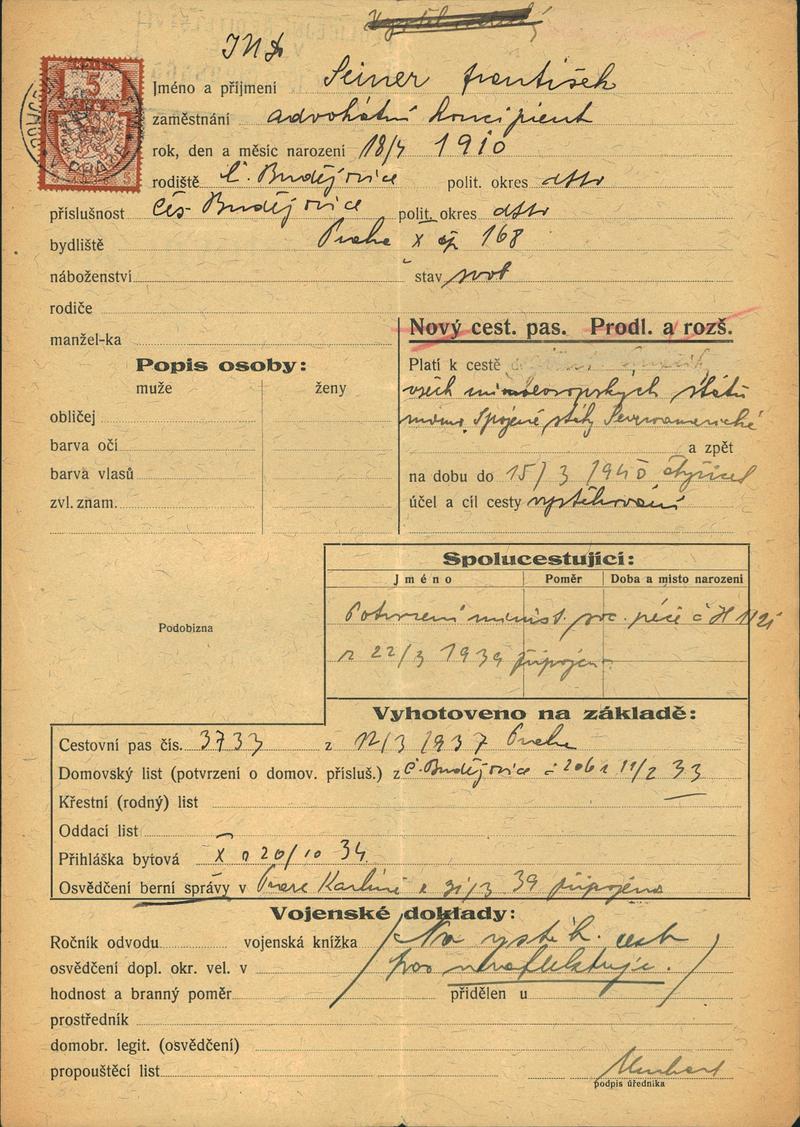 JUDr
Jméno a příjmení Seiner František
zaměstnání advokátní koncipient
rok, den a měsíc narození 18/4 1910
rodiště Č. Budějovice polit. okres dtto
příslušnost Čes. Budějovice polit. okres dtto
bydliště Praha X čp 168
náboženství stav svob
rodiče
manžel-ka
Popis osoby:
muže ženy
obličej
barva očí
barva vlasů
zvl. znam.
Nový cest. pas. Prodl. a rozš.
Platí k cestě
všech mimoevropských států
mimo Spojené státy Severoamerické
a zpět
na dobu do 15/3 1940 čtyřicet
účel a cíl cesty vystěhování
Podobizna
Spolucestující:
Jméno Poměr Doba a místo narození
Potvrzení minist. soc. péče č H
z 22/3 1939 připojeno
Vyhotoveno na základě:
Cestovní pas čís. 3733 z 12/3 1937 Praha
Domovský list (potvrzení o domov. přísluš.) z Č. Budějovice č 206 z 11/2 33
Křestní (rodný) list
Oddací list
Přihláška bytová X 20/10 34
Osvědčení berní správy v Praze Karlíně z 31/3 39 připojeno
Vojenské doklady:
Ročník odvodu vojenská knížka Na vystěh. cest.
osvědčení dopl. okr. vel. v pas nereflektuje.
hodnost a branný poměr přidělen u
prostředník
domobr. legit. (osvědčení)
propouštěcí list
podpis úředníka
5
V PRAZE